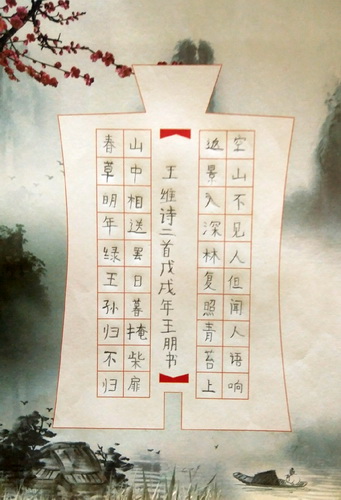 空山不见人但闻人语响
返景入深林复照青苔上
王维诗二首戊戌年王朋书
山中相送罢日暮掩柴扉
春草明年绿王孙归不归